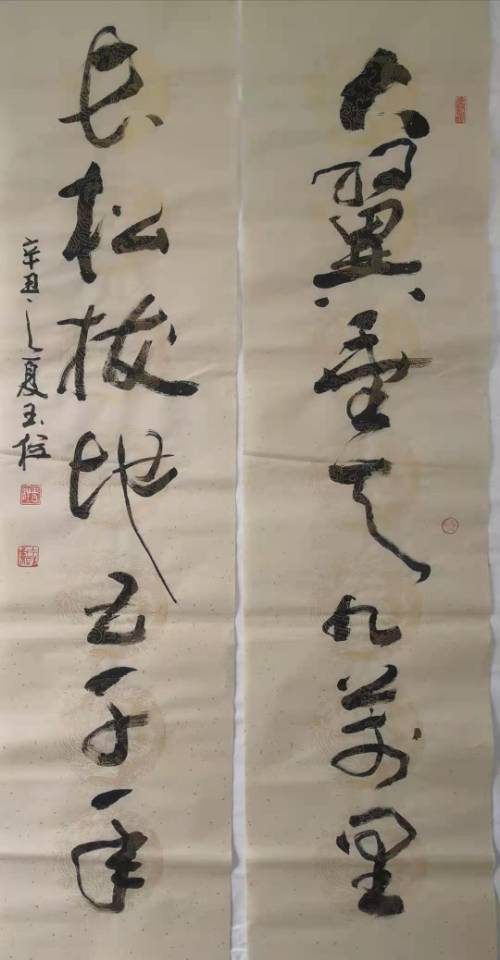 大翼垂天九萬里
长松拔地五千年
辛丑之夏玉